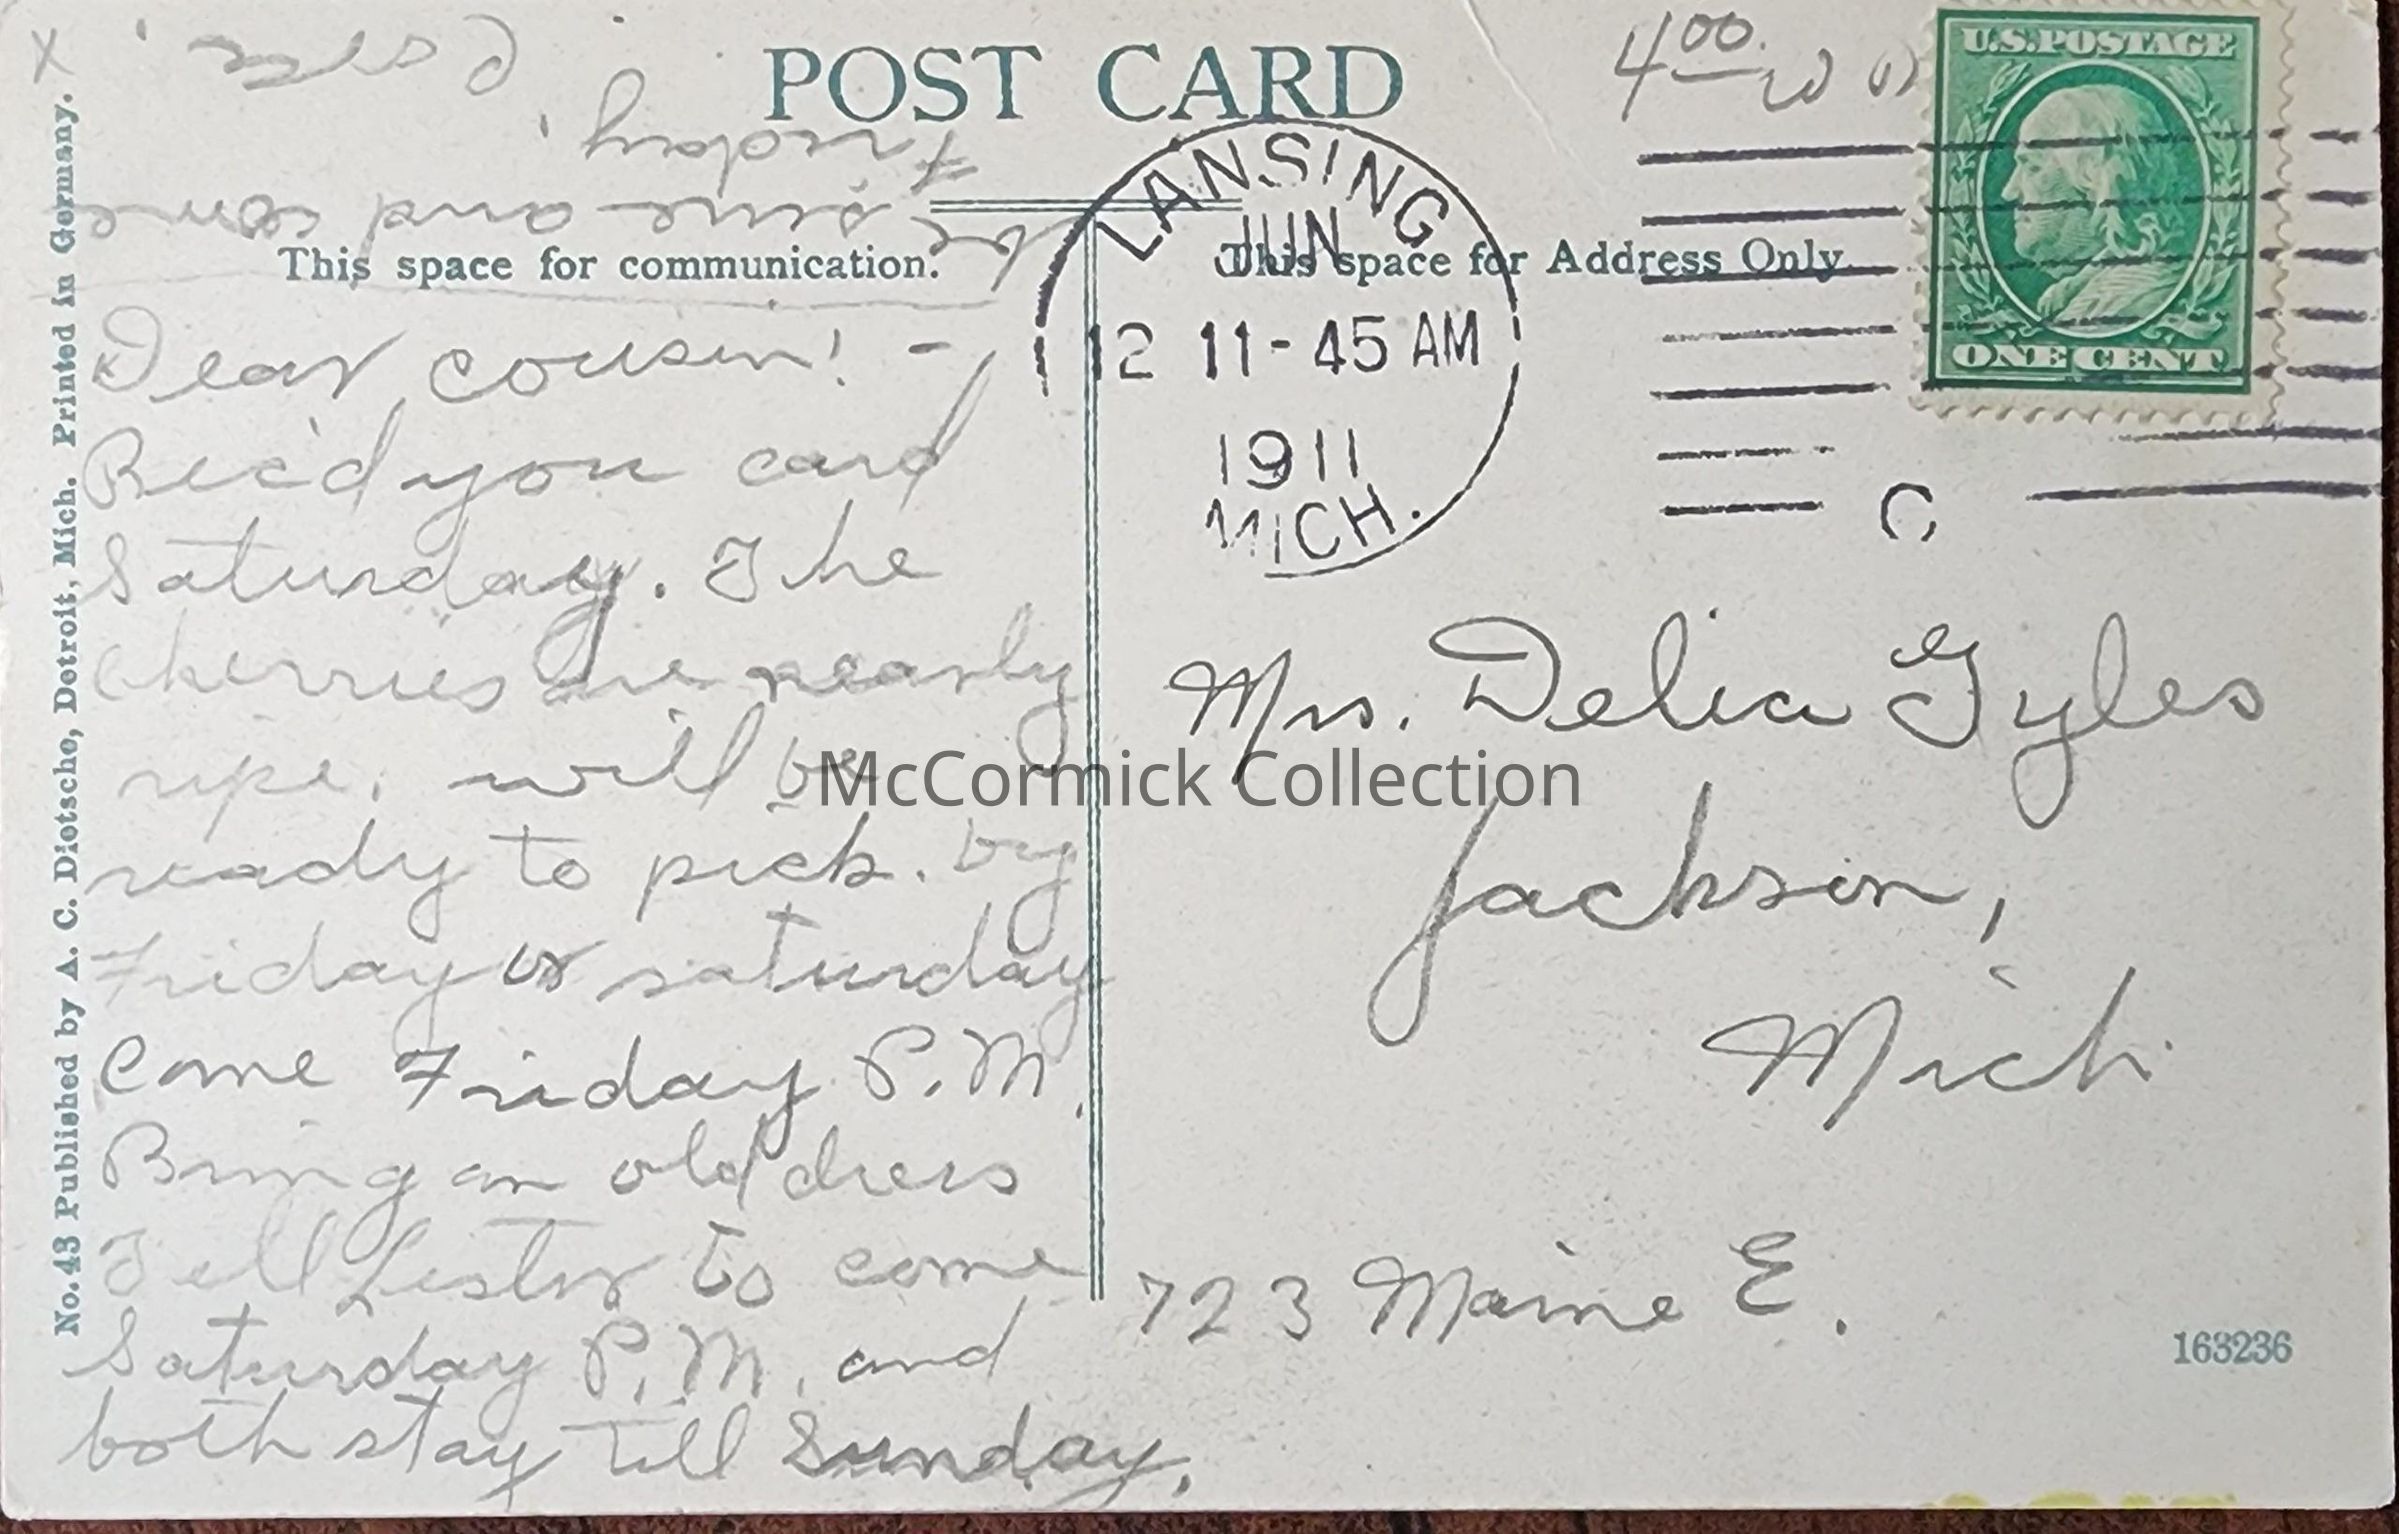 POST CARD
This space for communication.
This space for Address Only
No. 43 Published by A. C. Dietsche, Detroit, Mich. Printed in Germany.
4.00
U.S. POSTAGE
ONE CENT
LANSING
JUN
12 11-45 AM
1911
MICH.
C
Dear cousin! -
Rec'd you card
Saturday. The
cherries are nearly
ripe. will be
ready to pick. by
Friday or saturday
Come Friday P.M.
Bring an old dress
Tell Lester to come
Saturday P.M. and
both stay till Sunday.
be sure and come
Friday.
X
Mrs. Delia Gyles
Jackson,
Mich.
723 Maine E.
163236
McCormick Collection